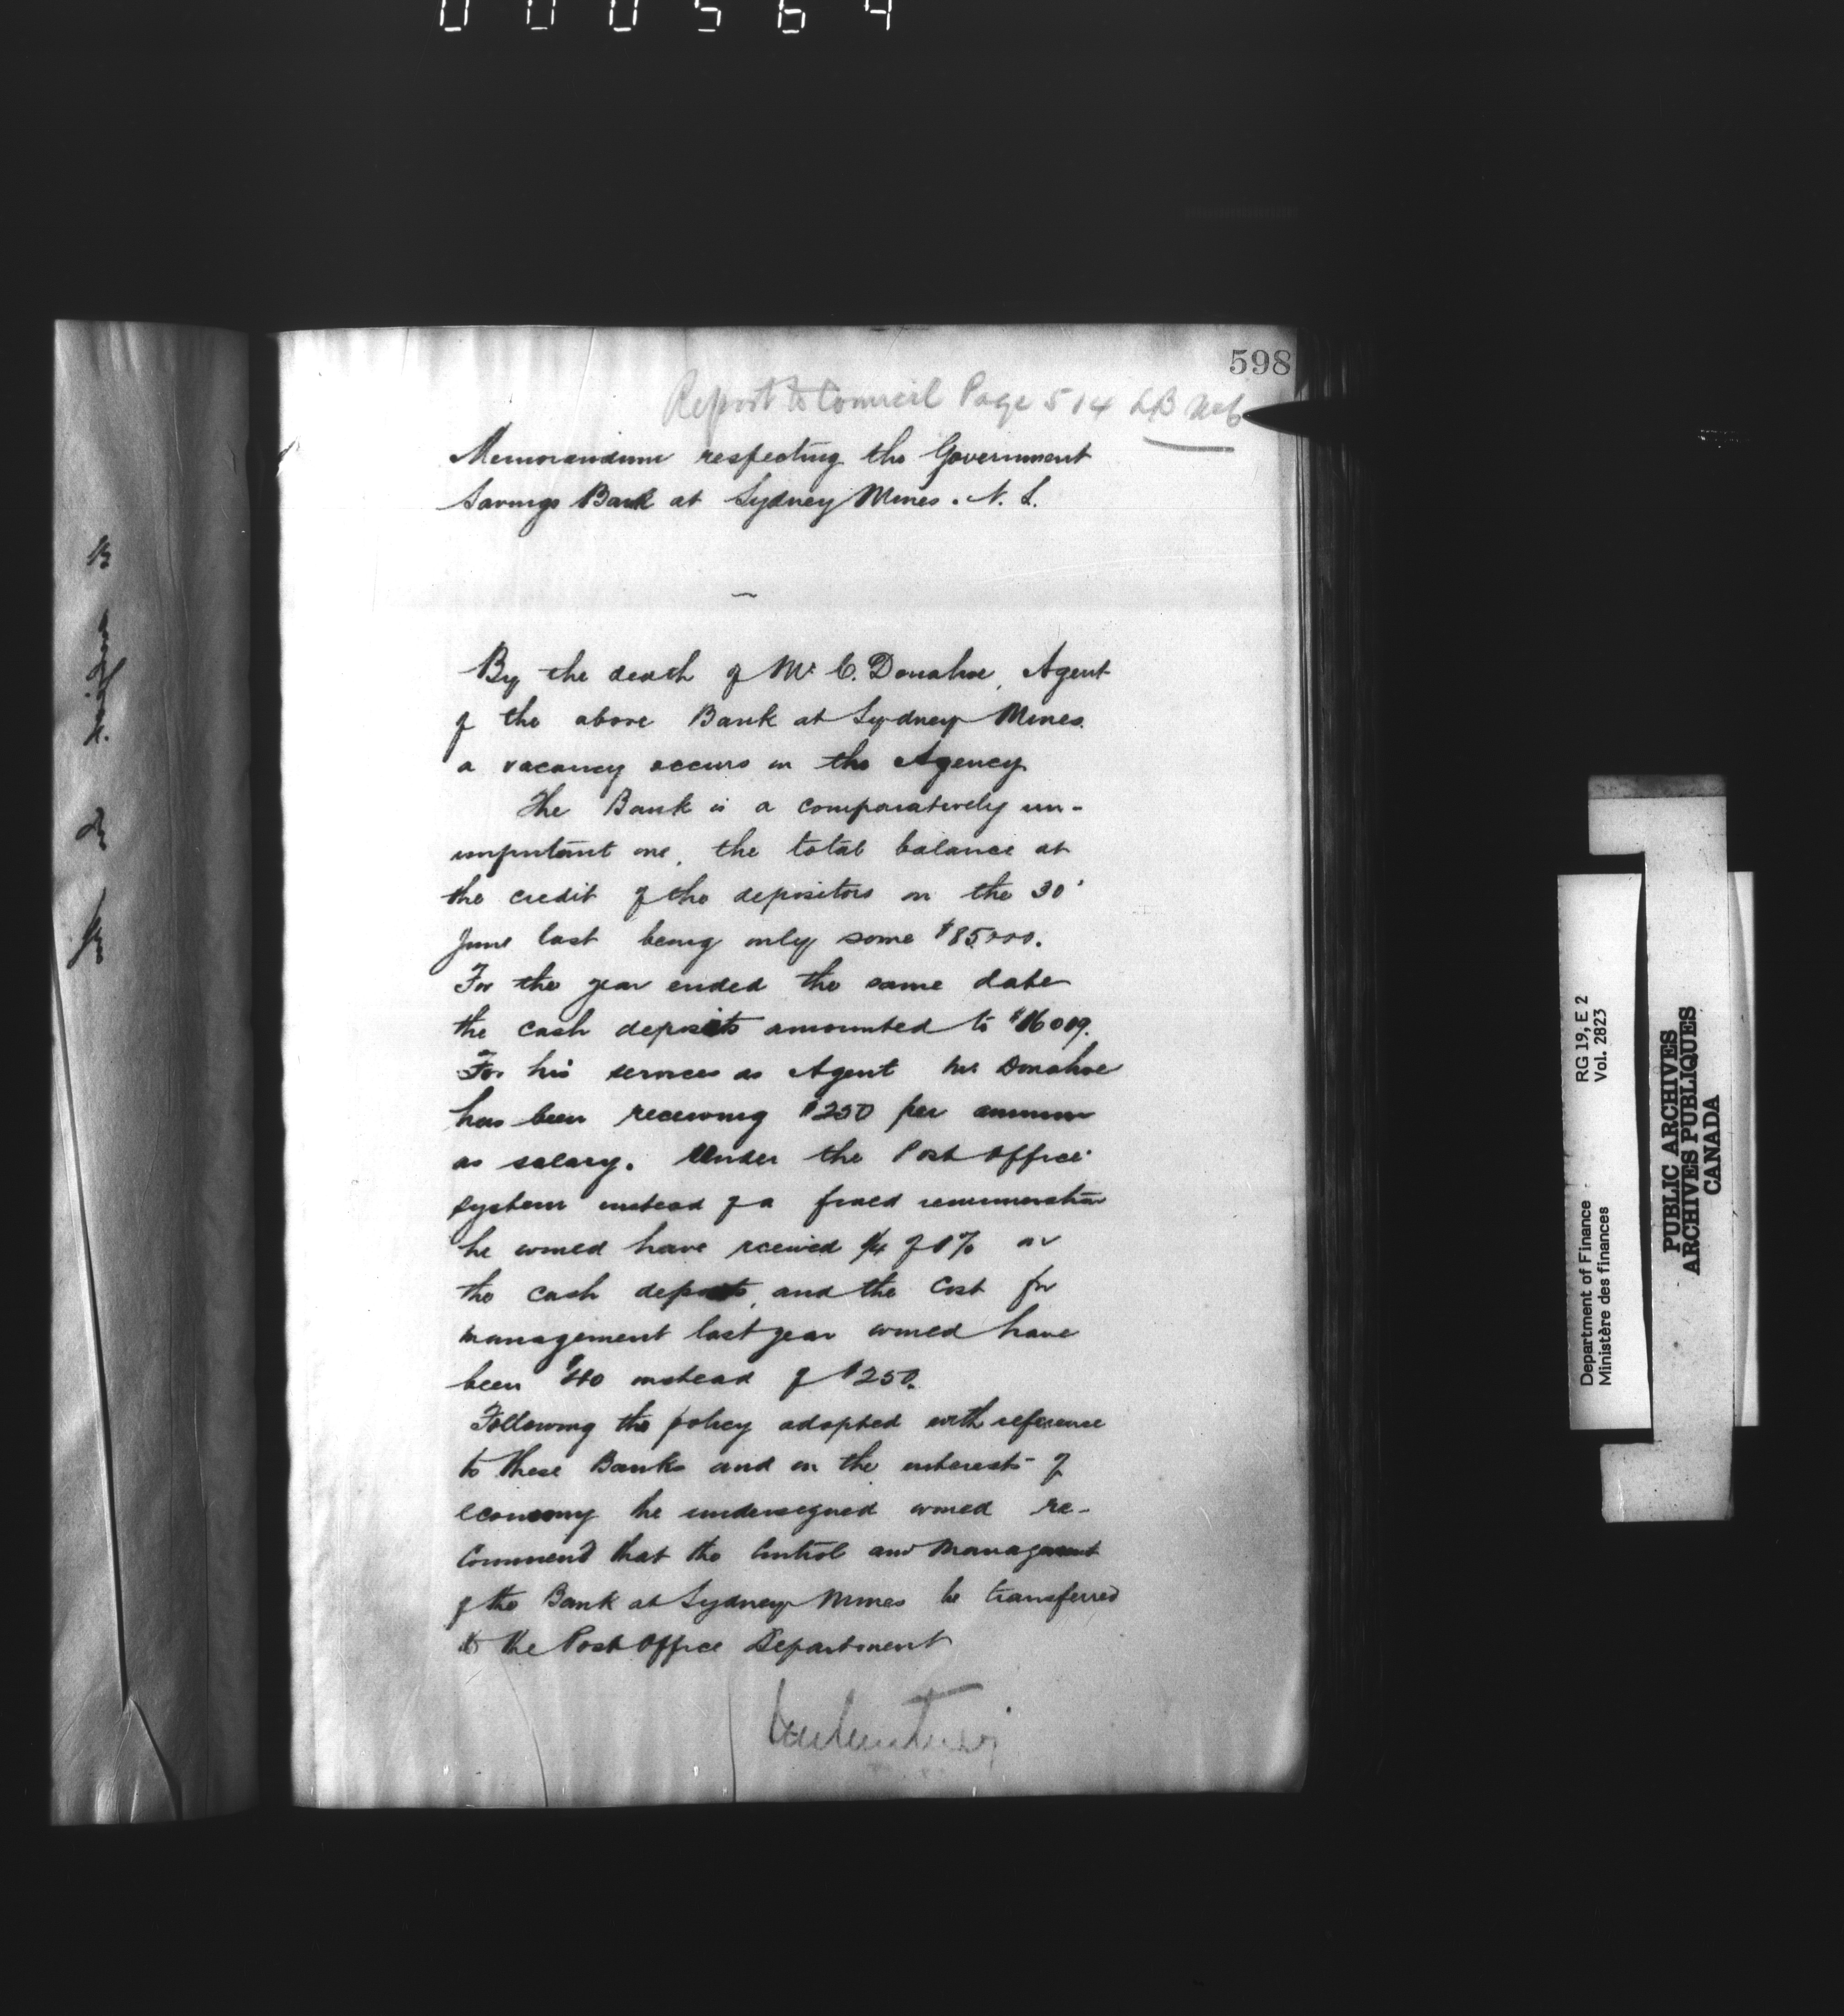 000564
598
Report to Council Page 514 LB No 6
Memorandum respecting the Government
Savings Bank at Sydney Mines. N. S.
By the death of Mr C. Donahoe, Agent
of the above Bank at Sydney Mines
a vacancy occurs in the Agency
The Bank is a comparatively un-
important one, the total balance at
the credit of the depositors on the 30'
June last being only some $85000.
For the year ended the same date
the cash deposits amounted to $16009.
For his services as Agent Mr Donahoe
has been receiving $250 per annum
as salary. Under the Post Office
system instead of a fixed remuneration
he would have received 1/4 of 1% on
the cash deposits, and the cost for
management last year would have
been $40 instead of $250.
Following the policy adopted with reference
to these Banks and in the interests of
economy the undersigned would re-
commend that the Control and Management
of the Bank at Sydney Mines be transferred
to the Post Office Department
Department of Finance RG 19, E 2
Ministère des finances Vol. 2823
PUBLIC ARCHIVES
ARCHIVES PUBLIQUES
CANADA